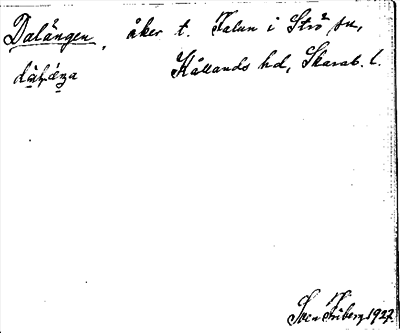 Dalängen, åker t. Falun i Strö sn,
Kållands hd, Skarab. l.
Sven Friberg 1927.